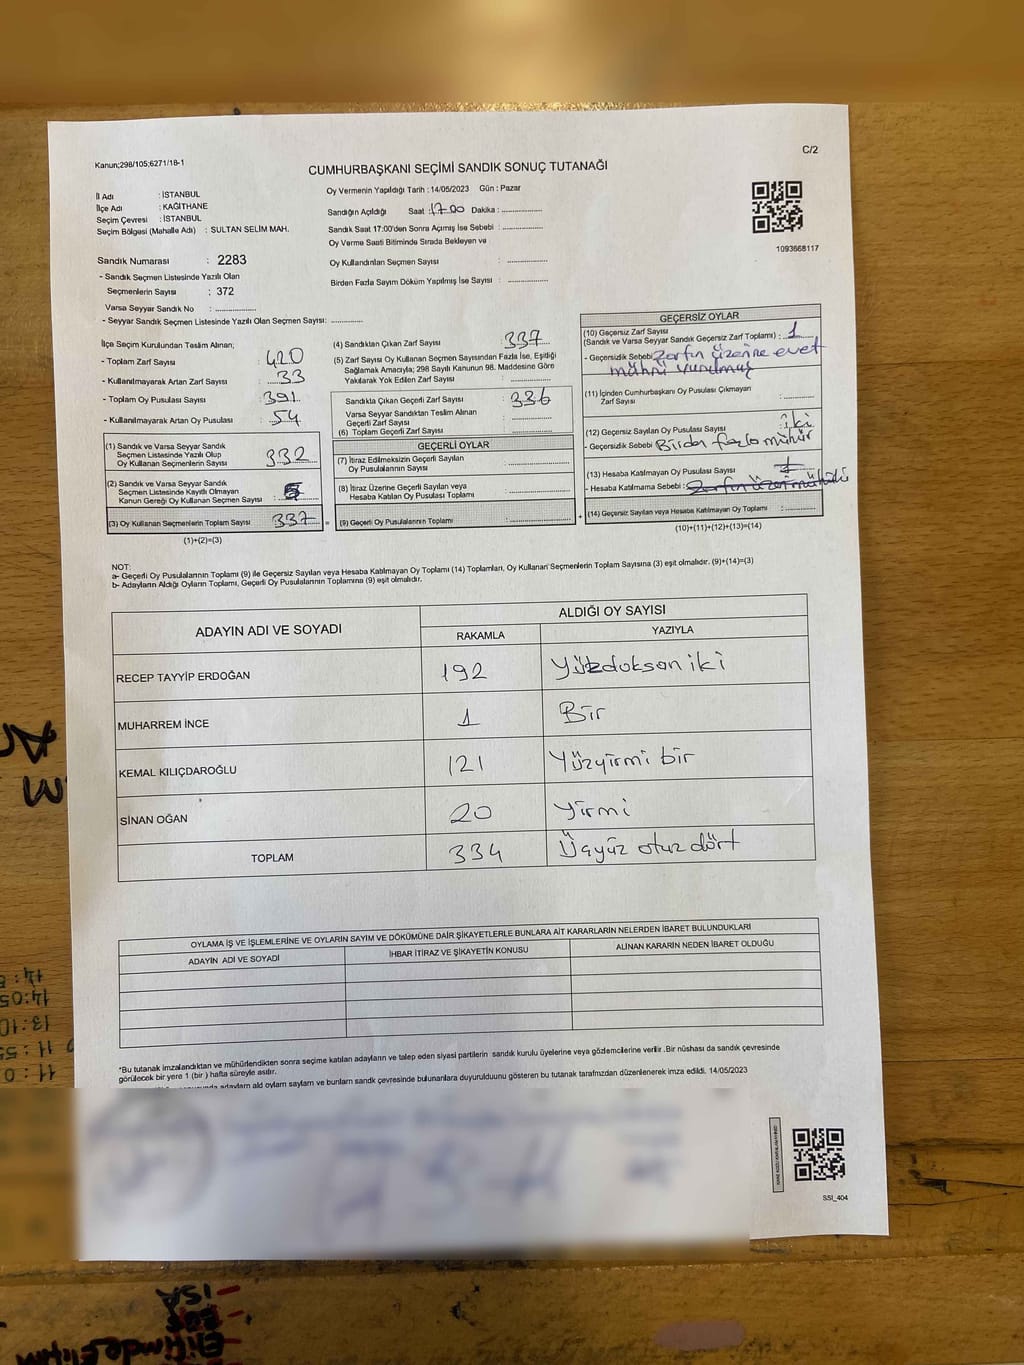 Kanun;298/105;6271/18-1
C/2
CUMHURBAŞKANI SEÇİMİ SANDIK SONUÇ TUTANAĞI
İl Adı : İSTANBUL
İlçe Adı : KAĞITHANE
Seçim Çevresi : İSTANBUL
Seçim Bölgesi (Mahalle Adı) : SULTAN SELİM MAH.
Oy Vermenin Yapıldığı Tarih : 14/05/2023 Gün : Pazar
Sandığın Açıldığı Saat : 17.00 Dakika : ................
Sandık Saat 17:00'den Sonra Açımış İse Sebebi : ................
Oy Verme Saati Bitiminde Sırada Bekleyen ve
Oy Kullandırılan Seçmen Sayısı : ................
Birden Fazla Sayım Döküm Yapılmış İse Sayısı : ................
1093668117
Sandık Numarası : 2283
- Sandık Seçmen Listesinde Yazılı Olan
Seçmenlerin Sayısı : 372
Varsa Seyyar Sandık No : ................
- Seyyar Sandık Seçmen Listesinde Yazılı Olan Seçmen Sayısı: ............
İlçe Seçim Kurulundan Teslim Alınan;
- Toplam Zarf Sayısı : 420
- Kullanılmayarak Artan Zarf Sayısı : 33
- Toplam Oy Pusulası Sayısı : 391
- Kullanılmayarak Artan Oy Pusulası : 54
(1) Sandık ve Varsa Seyyar Sandık
Seçmen Listesinde Yazılı Olup
Oy Kullanan Seçmenlerin Sayısı : 332
(2) Sandık ve Varsa Seyyar Sandık
Seçmen Listesinde Kayıtlı Olmayan
Kanun Gereği Oy Kullanan Seçmen Sayısı : 5
(3) Oy Kullanan Seçmenlerin Toplam Sayısı : 337
(1)+(2)=(3)
(4) Sandıktan Çıkan Zarf Sayısı : 337
(5) Zarf Sayısı Oy Kullanan Seçmen Sayısından Fazla İse, Eşitliği
Sağlamak Amacıyla; 298 Sayılı Kanunun 98. Maddesine Göre
Yakılarak Yok Edilen Zarf Sayısı : ................
Sandıkta Çıkan Geçerli Zarf Sayısı : 336
Varsa Seyyar Sandıktan Teslim Alınan
Geçerli Zarf Sayısı : ................
(6) Toplam Geçerli Zarf Sayısı : ................
GEÇERLİ OYLAR
(7) İtiraz Edilmeksizin Geçerli Sayılan
Oy Pusulalarının Sayısı : ................
(8) İtiraz Üzerine Geçerli Sayılan veya
Hesaba Katılan Oy Pusulası Toplamı : ................
= (9) Geçerli Oy Pusulalarının Toplamı : ................ +
GEÇERSİZ OYLAR
(10) Geçersiz Zarf Sayısı
(Sandık ve Varsa Seyyar Sandık Geçersiz Zarf Toplamı) : 1
- Geçersizlik Sebebi : Zarfın üzerine evet
mührü vurulmuş
(11) İçinden Cumhurbaşkanı Oy Pusulası Çıkmayan
Zarf Sayısı : ............
(12) Geçersiz Sayılan Oy Pusulası Sayısı : iki
- Geçersizlik Sebebi : Birden fazla mühür
(13) Hesaba Katılmayan Oy Pusulası Sayısı : 1
- Hesaba Katılmama Sebebi : Zarfın üzeri mühürlü
(14) Geçersiz Sayılan veya Hesaba Katılmayan Oy Toplamı : ............
(10)+(11)+(12)+(13)=(14)
NOT:
a- Geçerli Oy Pusulalarının Toplamı (9) ile Geçersiz Sayılan veya Hesaba Katılmayan Oy Toplamı (14) Toplamları, Oy Kullanan Seçmenlerin Toplam Sayısına (3) eşit olmalıdır. (9)+(14)=(3)
b- Adayların Aldığı Oyların Toplamı, Geçerli Oy Pusulalarının Toplamına (9) eşit olmalıdır.
ADAYIN ADI VE SOYADI
ALDIĞI OY SAYISI
RAKAMLA YAZIYLA
RECEP TAYYİP ERDOĞAN 192 Yüzdoksan iki
MUHARREM İNCE 1 Bir
KEMAL KILIÇDAROĞLU 121 Yüzyirmi bir
SİNAN OĞAN 20 Yirmi
TOPLAM 334 Üçyüz otuz dört
OYLAMA İŞ VE İŞLEMLERİNE VE OYLARIN SAYIM VE DÖKÜMÜNE DAİR ŞİKAYETLERLE BUNLARA AİT KARARLARIN NELERDEN İBARET BULUNDUKLARI
ADAYIN ADI VE SOYADI İHBAR İTİRAZ VE ŞİKAYETİN KONUSU ALINAN KARARIN NEDEN İBARET OLDUĞU
*Bu tutanak imzalandıktan ve mühürlendikten sonra seçime katılan adayların ve talep eden siyasi partilerin sandık kurulu üyelerine veya gözlemcilerine verilir .Bir nüshası da sandık çevresinde
görülecek bir yere 1 (bir ) hafta süreyle asılır.
adayların aldı oyların sayılam ve bunların sandık çevresinde bulunanlara duyurulduğunu gösteren bu tutanak tarafımızdan düzenlenerek imza edildi. 14/05/2023
SSI_404